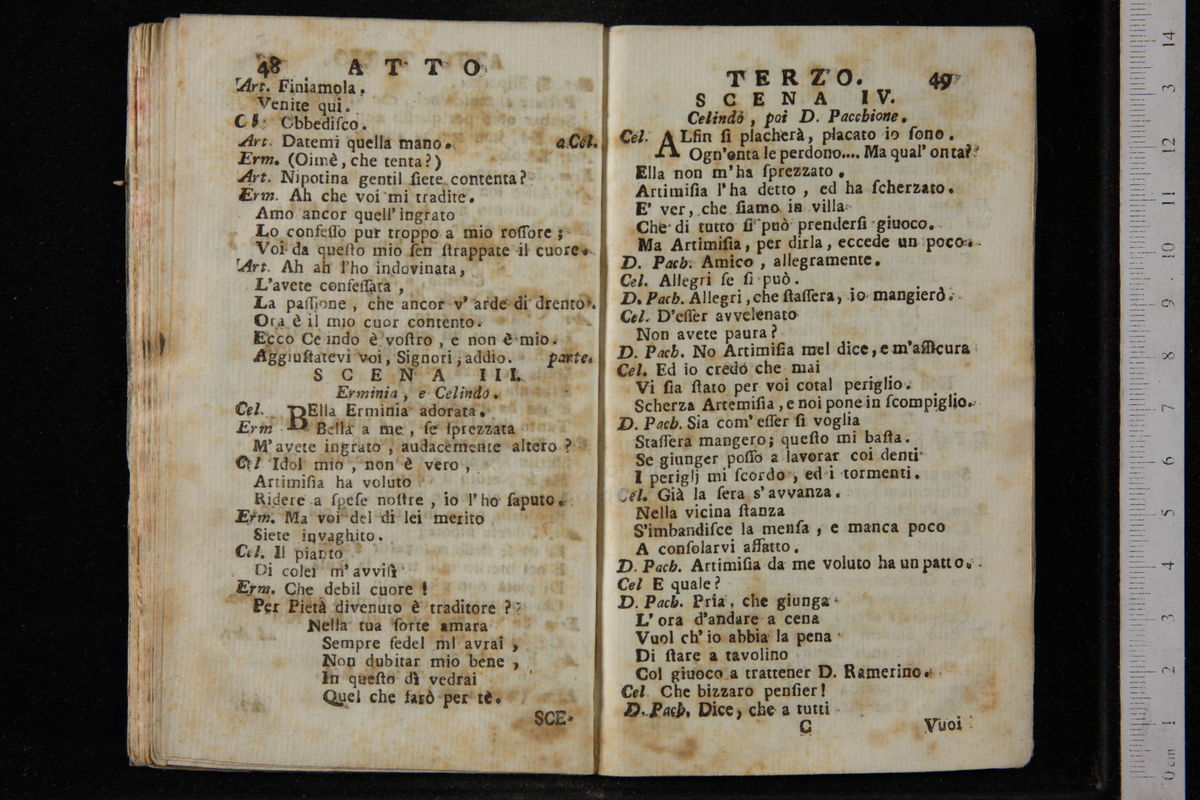 48 ATTO
Art. Finiamola.
Venite qui.
Cel. Obbedisco.
Art. Datemi quella mano. a Cel.
Erm. (Oimè, che tenta?)
Art. Nipotina gentil siete contenta?
Erm. Ah che voi mi tradite.
Amo ancor quell'ingrato
Lo confesso pur troppo a mio rossore;
Voi da questo mio sen strappate il cuore.
Art. Ah ah l'ho indovinata,
L'avete confessata,
La passione, che ancor v'arde di drento.
Ora è il mio cuor contento.
Ecco Ce indo è vostro, e non è mio.
Aggiustatevi voi, Signori, addio. parte.
SCENA III.
Erminia, e Celindo.
Cel. BElla Erminia adorata.
Erm Bella a me, se sprezzata
M'avete ingrato, audacemente altero?
Cel Idol mio, non è vero,
Artimisia ha voluto
Ridere a spese nostre, io l'ho saputo.
Erm. Ma voi del di lei merito
Siete invaghito.
Cel. Il pianto
Di colei m'avvilì
Erm. Che debil cuore!
Per Pietà divenuto è traditore?
Nella tua sorte amara
Sempre fedel mI avrai,
Non dubitar mio bene,
In questo dì vedrai
Quel che farò per te.
SCE-
TERZO. 49
SCENA IV.
Celindo, poi D. Pacchione.
Cel. ALfin si placherà, placato io sono.
Ogn'onta le perdono.... Ma qual' onta?
Ella non m'ha sprezzato.
Artimisia l'ha detto, ed ha scherzato.
E' ver, che siamo in villa
Che di tutto si può prendersi giuoco.
Ma Artimisia, per dirla, eccede un poco.
D. Pach. Amico, allegramente.
Cel. Allegri se si può.
D. Pach. Allegri, che stassera, io mangierò.
Cel. D'esser avvelenato
Non avete paura?
D. Pach. No Artimisia mel dice, e m'assicura
Cel. Ed io credo che mai
Vi sia stato per voi cotal periglio.
Scherza Artemisia, e noi pone in scompiglio.
D. Pach. Sia com' esser si voglia
Stassera mangero; questo mi basta.
Se giunger posso a lavorar coi denti
I periglj mi scordo, ed i tormenti.
Cel. Già la sera s'avvanza.
Nella vicina stanza
S'imbandisce la mensa, e manca poco
A consolarvi affatto.
D. Pach. Artimisia da me voluto ha un patto.
Cel E quale?
D. Pach. Pria, che giunga
L'ora d'andare a cena
Vuol ch'io abbia la pena
Di stare a tavolino
Col giuoco a trattener D. Ramerino.
Cel Che bizzaro pensier!
D. Pach. Dice, che a tutti
C Vuoi